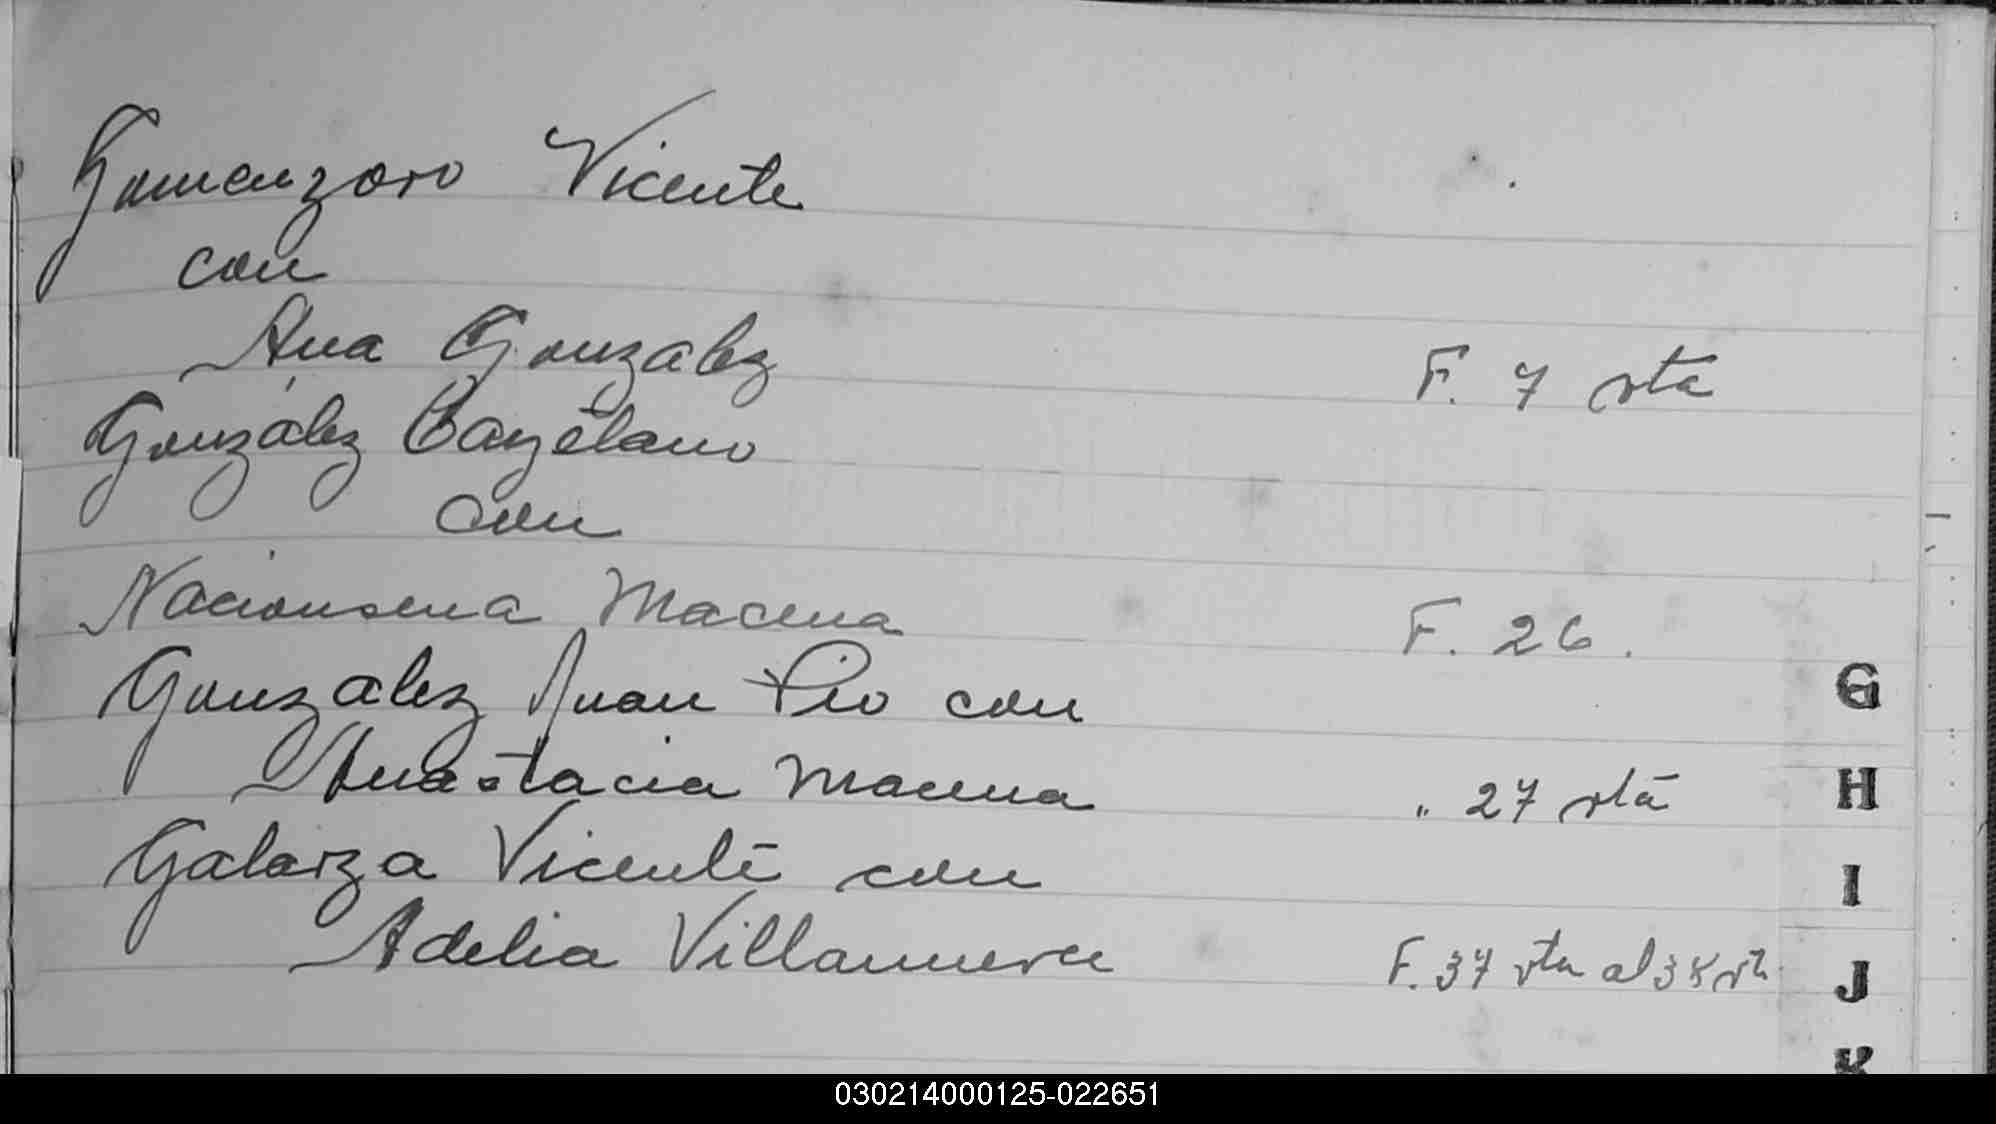 Gomenzoro Vicente
con
Ana Gonzalez F. 7 vta
González Cayetano
con
Nacionsena Macena F. 26.
Gonzalez Juan Pio con
Anastacia Macena " 27 vta
Galarza Vicente con
Adelia Villanueva F. 37 vta al 38 vta
G
H
I
J
K
030214000125-022651